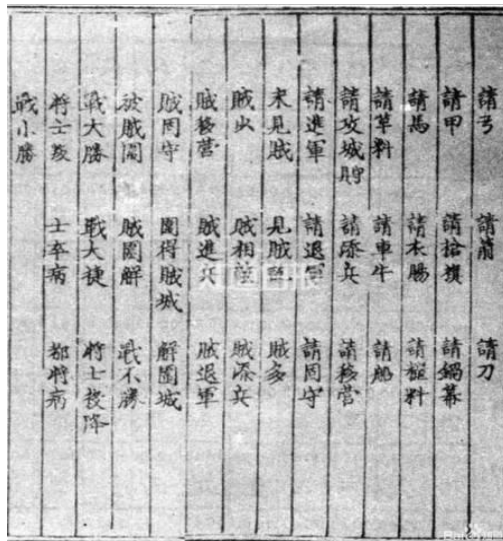 請弓 請箭 請刀
請甲 請槍旗 請鍋幕
請馬 請衣賜 請糧料
請草料 請車牛 請船
請攻城 請添兵 請移營
請進軍 請退軍 請固守
未見賊 見賊 賊多
賊 賊相 賊添兵
賊移營 賊進兵 賊退軍
賊固守 圍得賊城 解圍城
被賊圍 賊圍解 戰不勝
戰大勝 戰大捷 將士投降
將士叛 士卒病 都將病
戰小勝